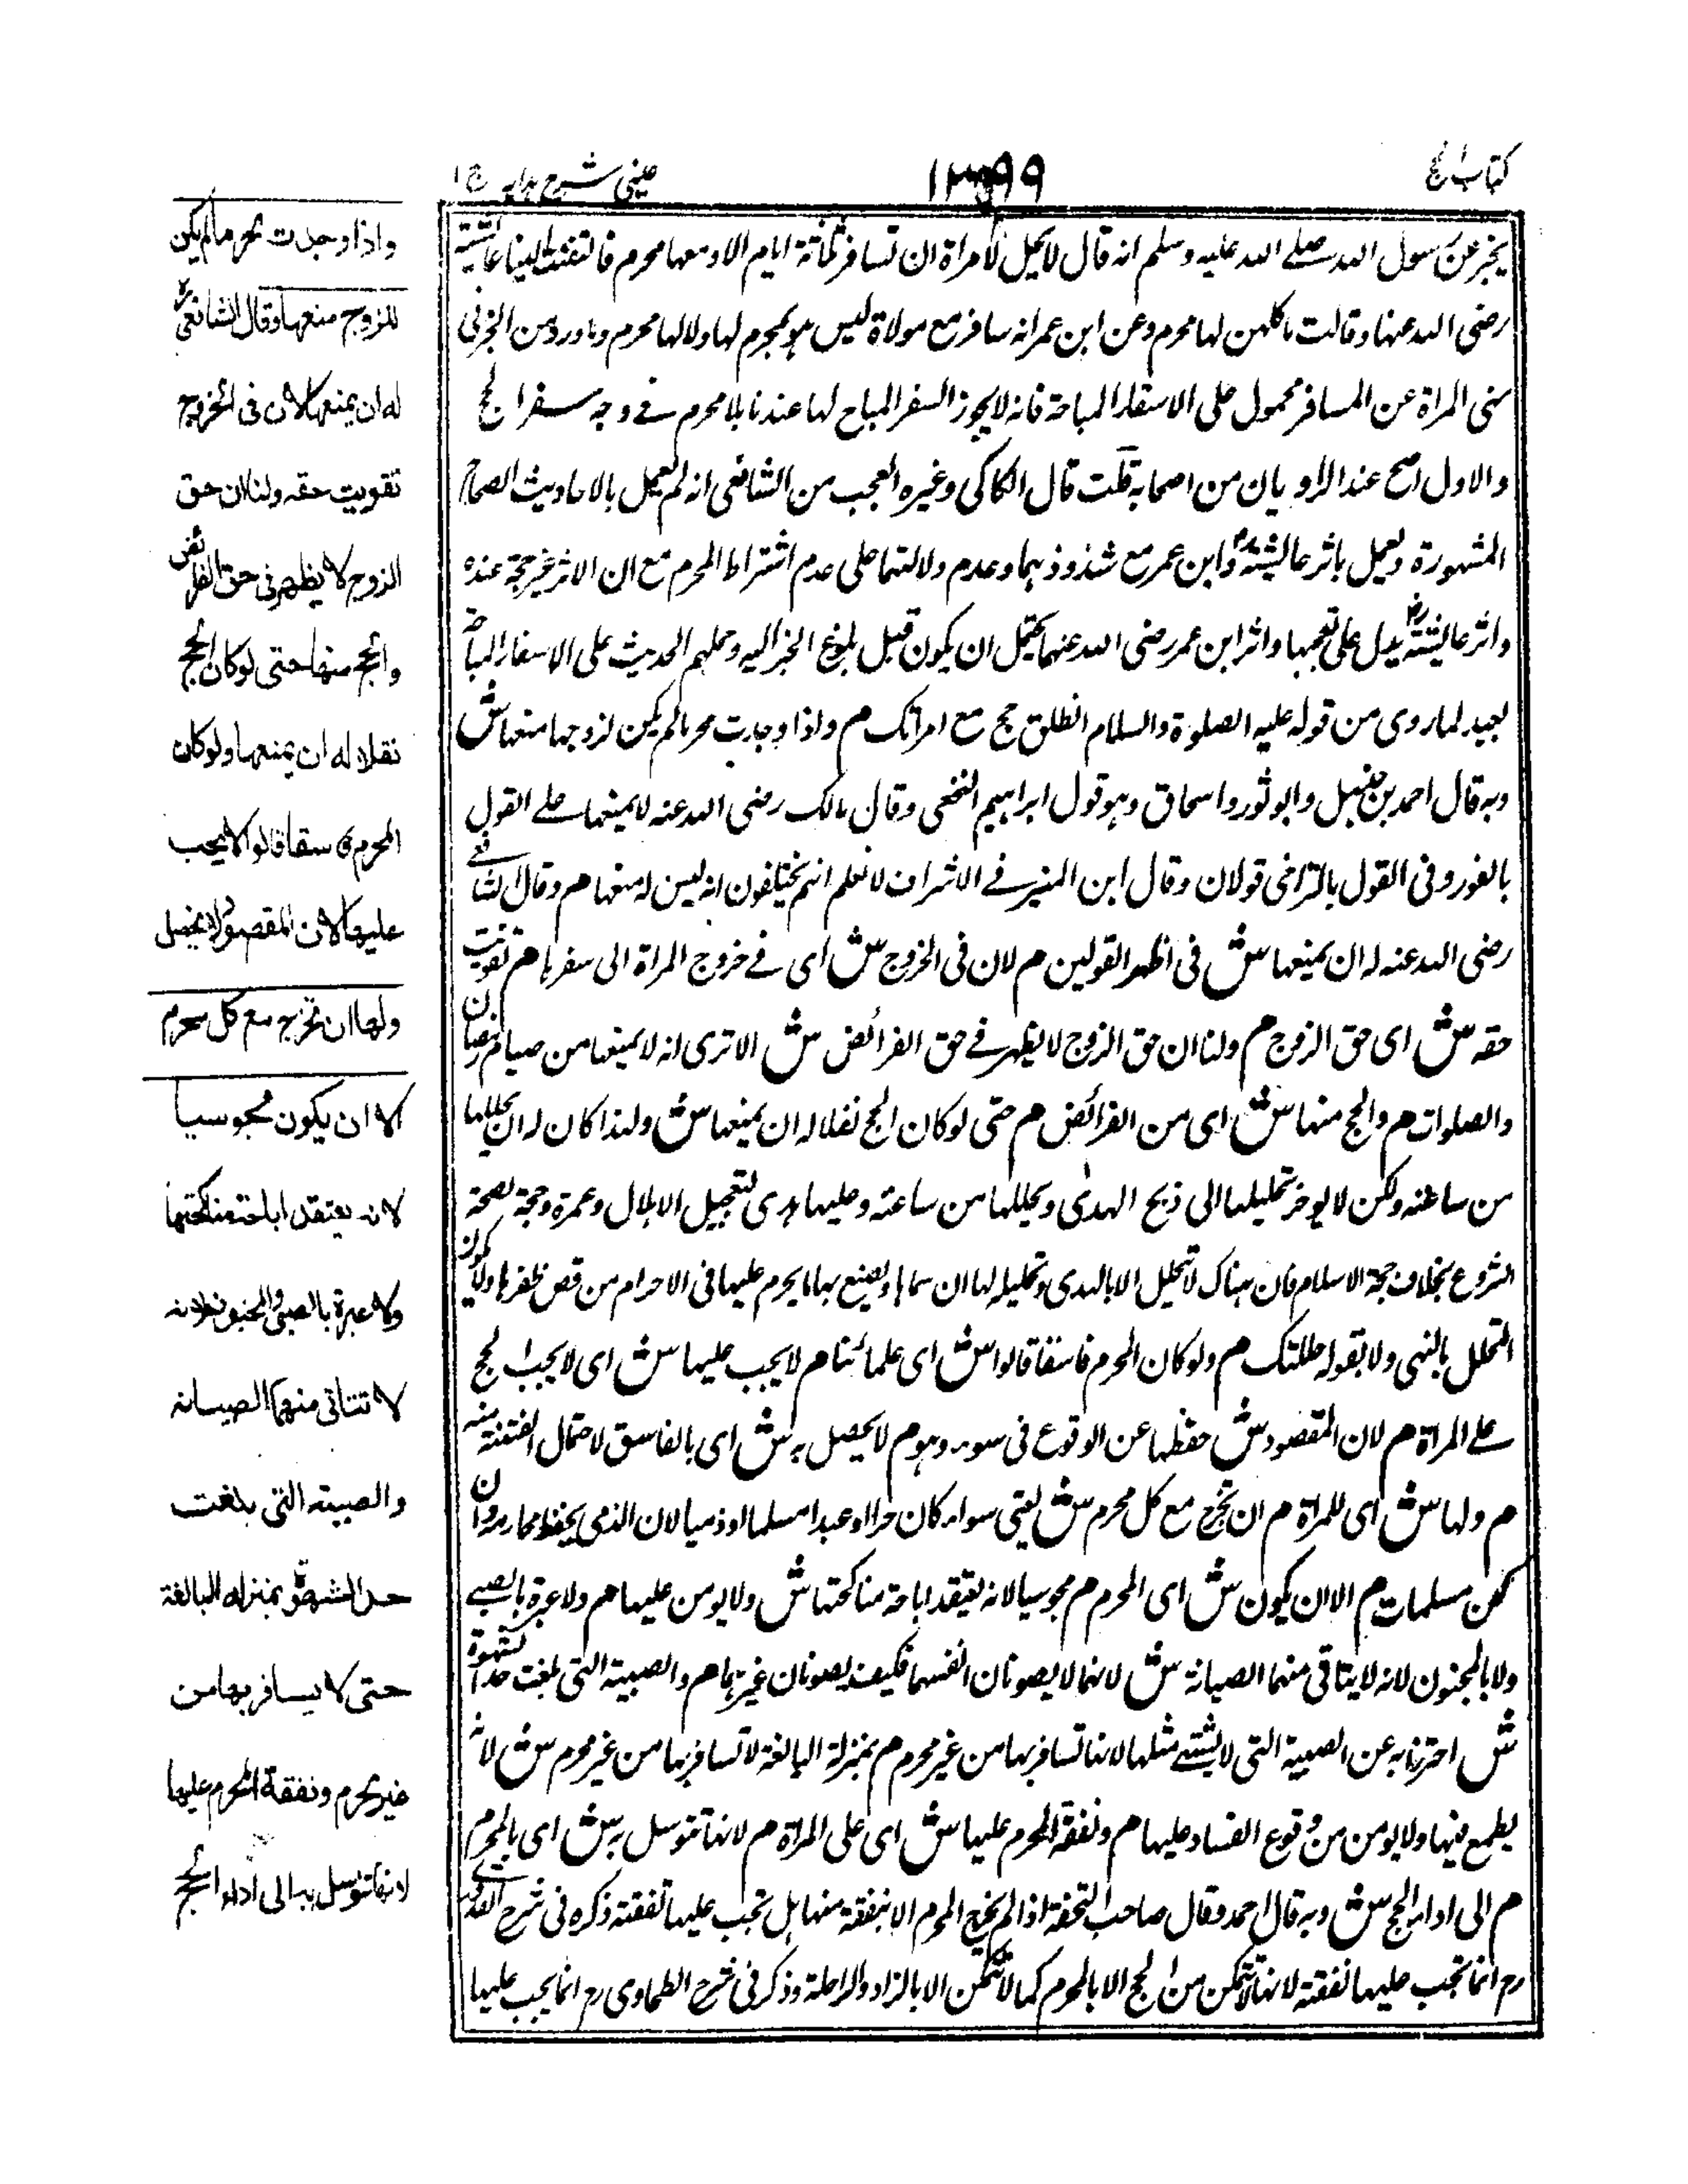 كتاب الحج
١٣٩٩
عينى شرح هدايه ج ١
يخبر عن رسول الله صلے الله عليه وسلم انه قال لا يحل لامراة ان تسافر ثلثة ايام الا ومعها محرم فالتفتت الينا عائشة
رضى الله عنها وقالت ما كلهن لها محرم وعن ابن عمر انه سافر مع مولاة ليس هو بمحرم لها ولا لها محرم وما ورد من
نهى المراة عن المسافر محمول على الاسفار المباحة فانه لا يجوز السفر المباح لها عندنا بلا محرم فے وجه سفر الحج
والاول اصح عند الرويان من اصحابه قلت قال الكاكى وغيره العجب من الشافعى انه لم يعمل بالاحاديث الصحاح
المشهورة ويعمل باثر عائشة رض وابن عمر مع شذوذهما وعدم دلالتهما على عدم اشتراط المحرم مع ان الاثر غير حجة عنده
واثر عائشة رض يدل على تعجبها واثر ابن عمر رضى الله عنهما يحتمل ان يكون قبل بلوغ الخبر اليه وحملهم الحديث على الاسفار المباحة
بعيد لما روى من قوله عليه الصلوة والسلام انطلق حج مع امراتك م واذا وجدت محرما لم يكن لزوجها منعها ش
وبه قال احمد بن حنبل وابو ثور واسحاق وهو قول ابراهيم النخعى وقال مالك رضى الله عنه لا يمنعها علے القول
بالفور وفى القول بالتراخى قولان وقال ابن المنير فے الاشراف لا نعلم انهم يختلفون انه ليس له منعها م وقال الشافعے
رضى الله عنه له ان يمنعها ش فى اظهر القولين م لان فى الخروج ش اى فے خروج المراة الى سفرها م تفويت
حقه ش اى حق الزوج م ولنا ان حق الزوج لا يظهر فے حق الفرائض ش الا ترى انه لا يمنعها من صيام رمضان
والصلوات م والحج منها ش اى من الفرائض م حتى لو كان الحج نفلا له ان يمنعها ش ولهذا كان له ان يحللها
من ساعته ولكن لا يوخر تحليلها الى ذبح الهدى ويحللها من ساعته وعليها هدى لتعجيل الاهلال وعمرة وحجة لصحة
الشروع بخلاف حجة الاسلام فان هناك لا تحلل الا بالهدى وتحليله لها ان ويصنع بها ما يحرم عليها فى الاحرام من قص ظفرها ولا يكون
التحلل بالنهى ولا بقوله حللتك م ولو كان المحرم فاسقا قالوا ش اى علمائنا م لا يجب عليها ش اى لا يجب الحج
علے المراة م لان المقصود ش حفظها عن الوقوع فى سوء وهو م لا يحصل به ش اى بالفاسق لاحتمال الفتنة منه
م ولها ش اى للمراة م ان تخرج مع كل محرم ش يعنى سواء كان حرا او عبدا مسلما او ذميا لان الذمى يحفظ محارمه وان
كن مسلمات م الا ان يكون ش اى المحرم م مجوسيا لانه يعتقد اباحة مناكحتها ش ولا يومن عليها م ولا عبرة بالصبے
ولا بالمجنون لانه لا يتاتى منهما الصيانة ش لانهما لا يصونان انفسهما فكيف يصونان غيرهما م والصبية التى بلغت حد الشهوة
ش احترز به عن الصبية التى لا يشتهے مثلها لانها تسافر بها من غير محرم م بمنزلة البالغة لا تسافر بها من غير محرم ش لانه
يطمع فيها ولا يومن من وقوع الفساد عليها م ونفقة المحرم عليها ش اى على المراة م لانها تتوسل به ش اى بالمحرم
م الى اداء الحج ش وبه قال احمد وقال صاحب التحفة اذا لم يخرج المحرم الا بنفقة منها هل تجب عليها نفقته ذكره فى شرح القدورى
رح انما تجب عليها نفقته لانها لا تتمكن من الحج الا بالمحرم كما لا تتمكن الا بالزاد والراحلة وذكر فى شرح الطحاوى رح انما يجب عليها
واذا وجدت محرما لم يكن
للزوج منعها وقال الشافعى رح
له ان يمنعها لان فى الخروج
تفويت حقه ولنا ان حق
الزوج لا يظهر فى حق الفرائض
والحج منها حتى لو كان الحج
نفلا له ان يمنعها ولو كان
المحرم فاسقا قالوا لا يجب
عليها لان المقصود لا يحصل
ولها ان تخرج مع كل محرم
الا ان يكون مجوسيا
لانه يعتقد اباحة مناكحتها
ولا عبرة بالصبى والمجنون لانه
لا تتاتى منهما الصيانه
والصبيه التى بلغت
حد الشهوة بمنزله البالغة
حتى لا يسافر بها من
غير محرم ونفقة المحرم عليها
لانها تتوسل به الى اداء الحج